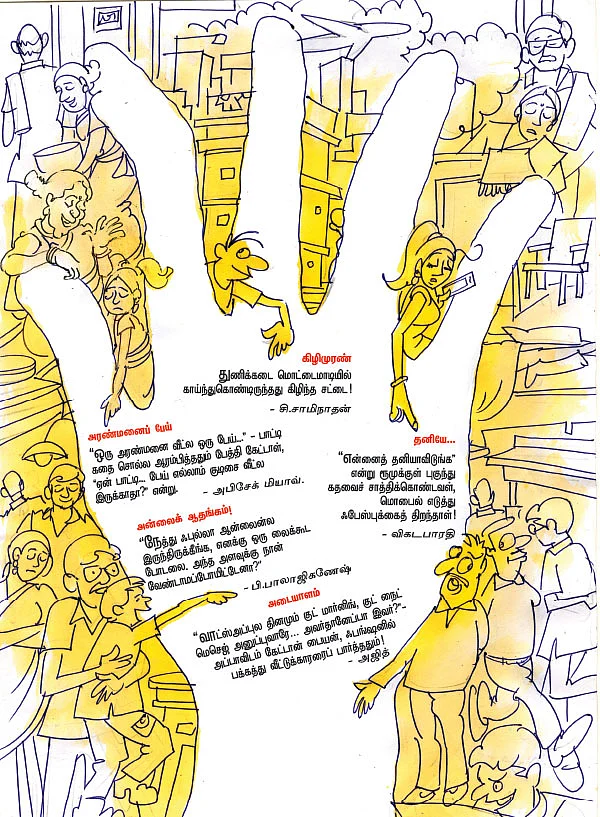 கிழிமுரண்
துணிக்கடை மொட்டைமாடியில்
காய்ந்துகொண்டிருந்தது கிழிந்த சட்டை!
- சி.சாமிநாதன்
அரண்மனைப் பேய்
“ஒரு அரண்மனை வீட்ல ஒரு பேய்...” - பாட்டி
கதை சொல்ல ஆரம்பித்ததும் பேத்தி கேட்டாள்,
“ஏன் பாட்டி... பேய் எல்லாம் குடிசை வீட்ல
இருக்காதா?” என்று.
- அபிசேக் மியாவ்.
தனியே...
“என்னைத் தனியாவிடுங்க”
என்று ரூமுக்குள் புகுந்து
கதவைச் சாத்திக்கொண்டவள்,
மொபைல் எடுத்து
ஃபேஸ்புக்கைத் திறந்தாள்!
- விகடபாரதி
அன்லைக் ஆதங்கம்!
“நேத்து ஃபுல்லா ஆன்லைன்ல
இருந்திருக்கீங்க, எனக்கு ஒரு லைக்கூட
போடலை. அந்த அளவுக்கு நான்
வேண்டாமப்போயிட்டேனா?”
- பி.பாலாஜிகணேஷ்
அடையாளம்
“வாட்ஸ்அப்புல தினமும் குட் மார்னிங், குட் நைட்
மெசெஜ் அனுப்புவாரே... அவர்தானேப்பா இவர்?”-
அப்பாவிடம் கேட்டான் பையன், ஃபங்ஷனில்
பக்கத்து வீட்டுக்காரரைப் பார்த்ததும்!
- அஜித்